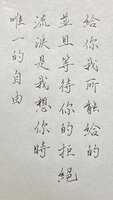 給你我所能給的
並且等待你的拒絕
流淚是我想你時
唯一的自由